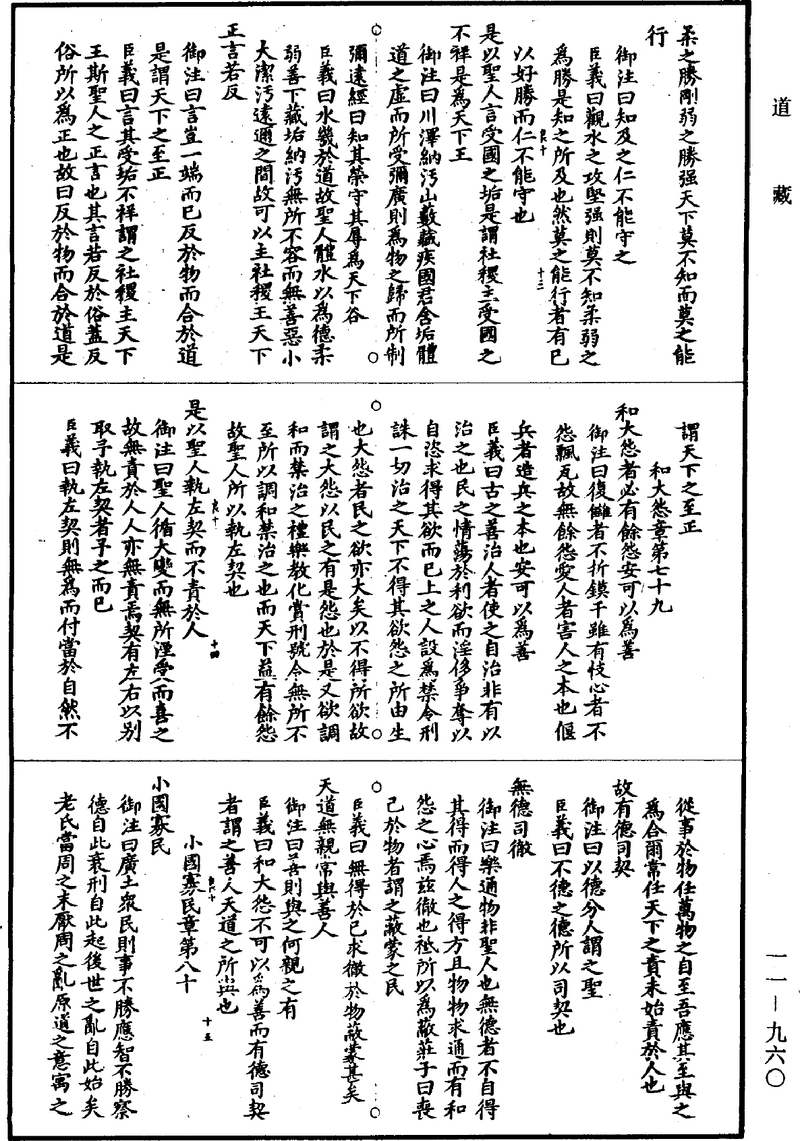 道藏
柔之勝剛弱之勝强天下莫不知而莫之能
行
御注曰知及之仁不能守之
臣義曰觀水之攻堅强則莫不知柔弱之
爲勝是知之所及也然莫之能行者有已
以好勝而仁不能守也
是以聖人言受國之垢是謂社稷主受國之
不祥是爲天下王
御注曰川澤納汚山藪藏疾國君含垢體
道之虛而所受彌廣則爲物之歸而所制
彌遠經曰知其榮守其辱爲天下谷
臣義曰水幾於道故聖人體水以爲德柔
弱善下藏垢納汚無所不容而無善惡小
大潔汚遠邇之間故可以主社稷王天下
正言若反
御注曰言豈一端而已反於物而合於道
是謂天下之至正
臣義曰言其受垢不祥謂之社稷主天下
王斯聖人之正言也其言若反於俗蓋反
俗所以爲正也故曰反於物而合於道是
謂天下之至正
和大怨章第七十九
和大怨者必有餘怨安可以爲善
御注曰復讎者不折鏌干雖有忮心者不
怨飄瓦故無餘怨愛人者害人之本也偃
兵者造兵之本也安可以爲善
臣義曰古之善治人者使之自治非有以
治之也民之情蕩於利欲而淫侈爭奪以
自恣求得其欲而已上之人設爲禁令刑
誅一切治之天下不得其欲怨之所由生
也大怨者民之欲亦大矣以不得所欲故
謂之大怨以民之有是怨也於是又欲調
和而禁治之禮樂教化賞刑號令無所不
至所以調和禁治之也而天下益有餘怨
故聖人所以執左契也
是以聖人執左契而不責於人
十四
御注曰聖人循大變而無所湮受而喜之
故無責於人人亦無責焉契有左右以别
取予執左契者予之而已
臣義曰執左契則無爲而付當於自然不
從事於物任萬物之自至吾應其至與之
爲合爾常任天下之責未始責於人也
故有德司契
御注曰以德分人謂之聖
臣義曰不德之德所以司契也
無德司徹
御注曰樂通物非聖人也無德者不自得
其得而得人之得方且物物求通而有和
怨之心焉兹徹也祗所以爲蔽莊子曰喪
己於物者謂之蔽蒙之民
臣義曰無得於已求徹於物蔽蒙甚矣
天道無親常與善人
御注曰善則與之何親之有
臣義曰和大怨不可以爲善而有德司契
者謂之善人天道之所與也
十五
小國寡民章第八十
小國寡民
御注曰廣土衆民則事不勝應智不勝察
德自此衰刑自此起後世之亂自此始矣
老氏當周之末厭周之亂原道之意寓之
一一－九六〇